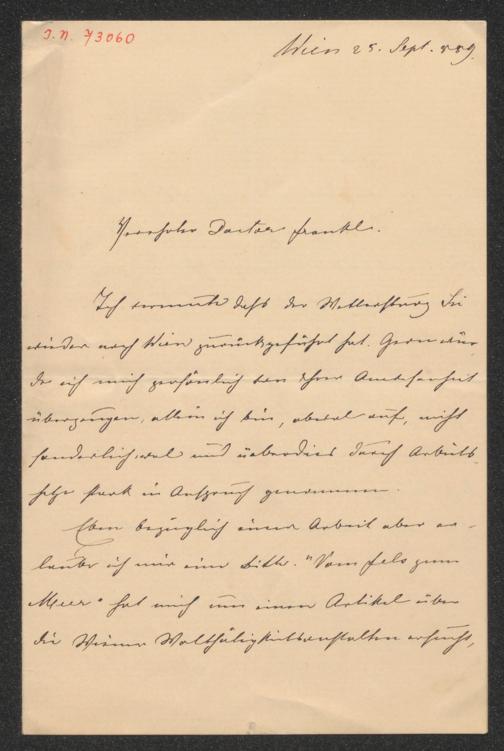 J.N. 73060
Wien 25. Sept. 889.
Verehrter Doctor Frankl.
Ich vermute daß der Wettersturz Sie
wieder nach Wien zurückgeführt hat. Gern wür-
de ich mich persönlich von Ihrer Anwesenheit
überzeugen, allein ich bin, obwol auf, nicht
sonderlich wol und ueberdies durch Arbeits-
hetze stark in Anspruch genommen.
Eben bezüglich einer Arbeit aber er-
laube ich mir eine Bitte. "Vom Fels zum
Meer" hat mich um einen Artikel über
die Wiener Wolthätigkeitsanstalten ersucht,